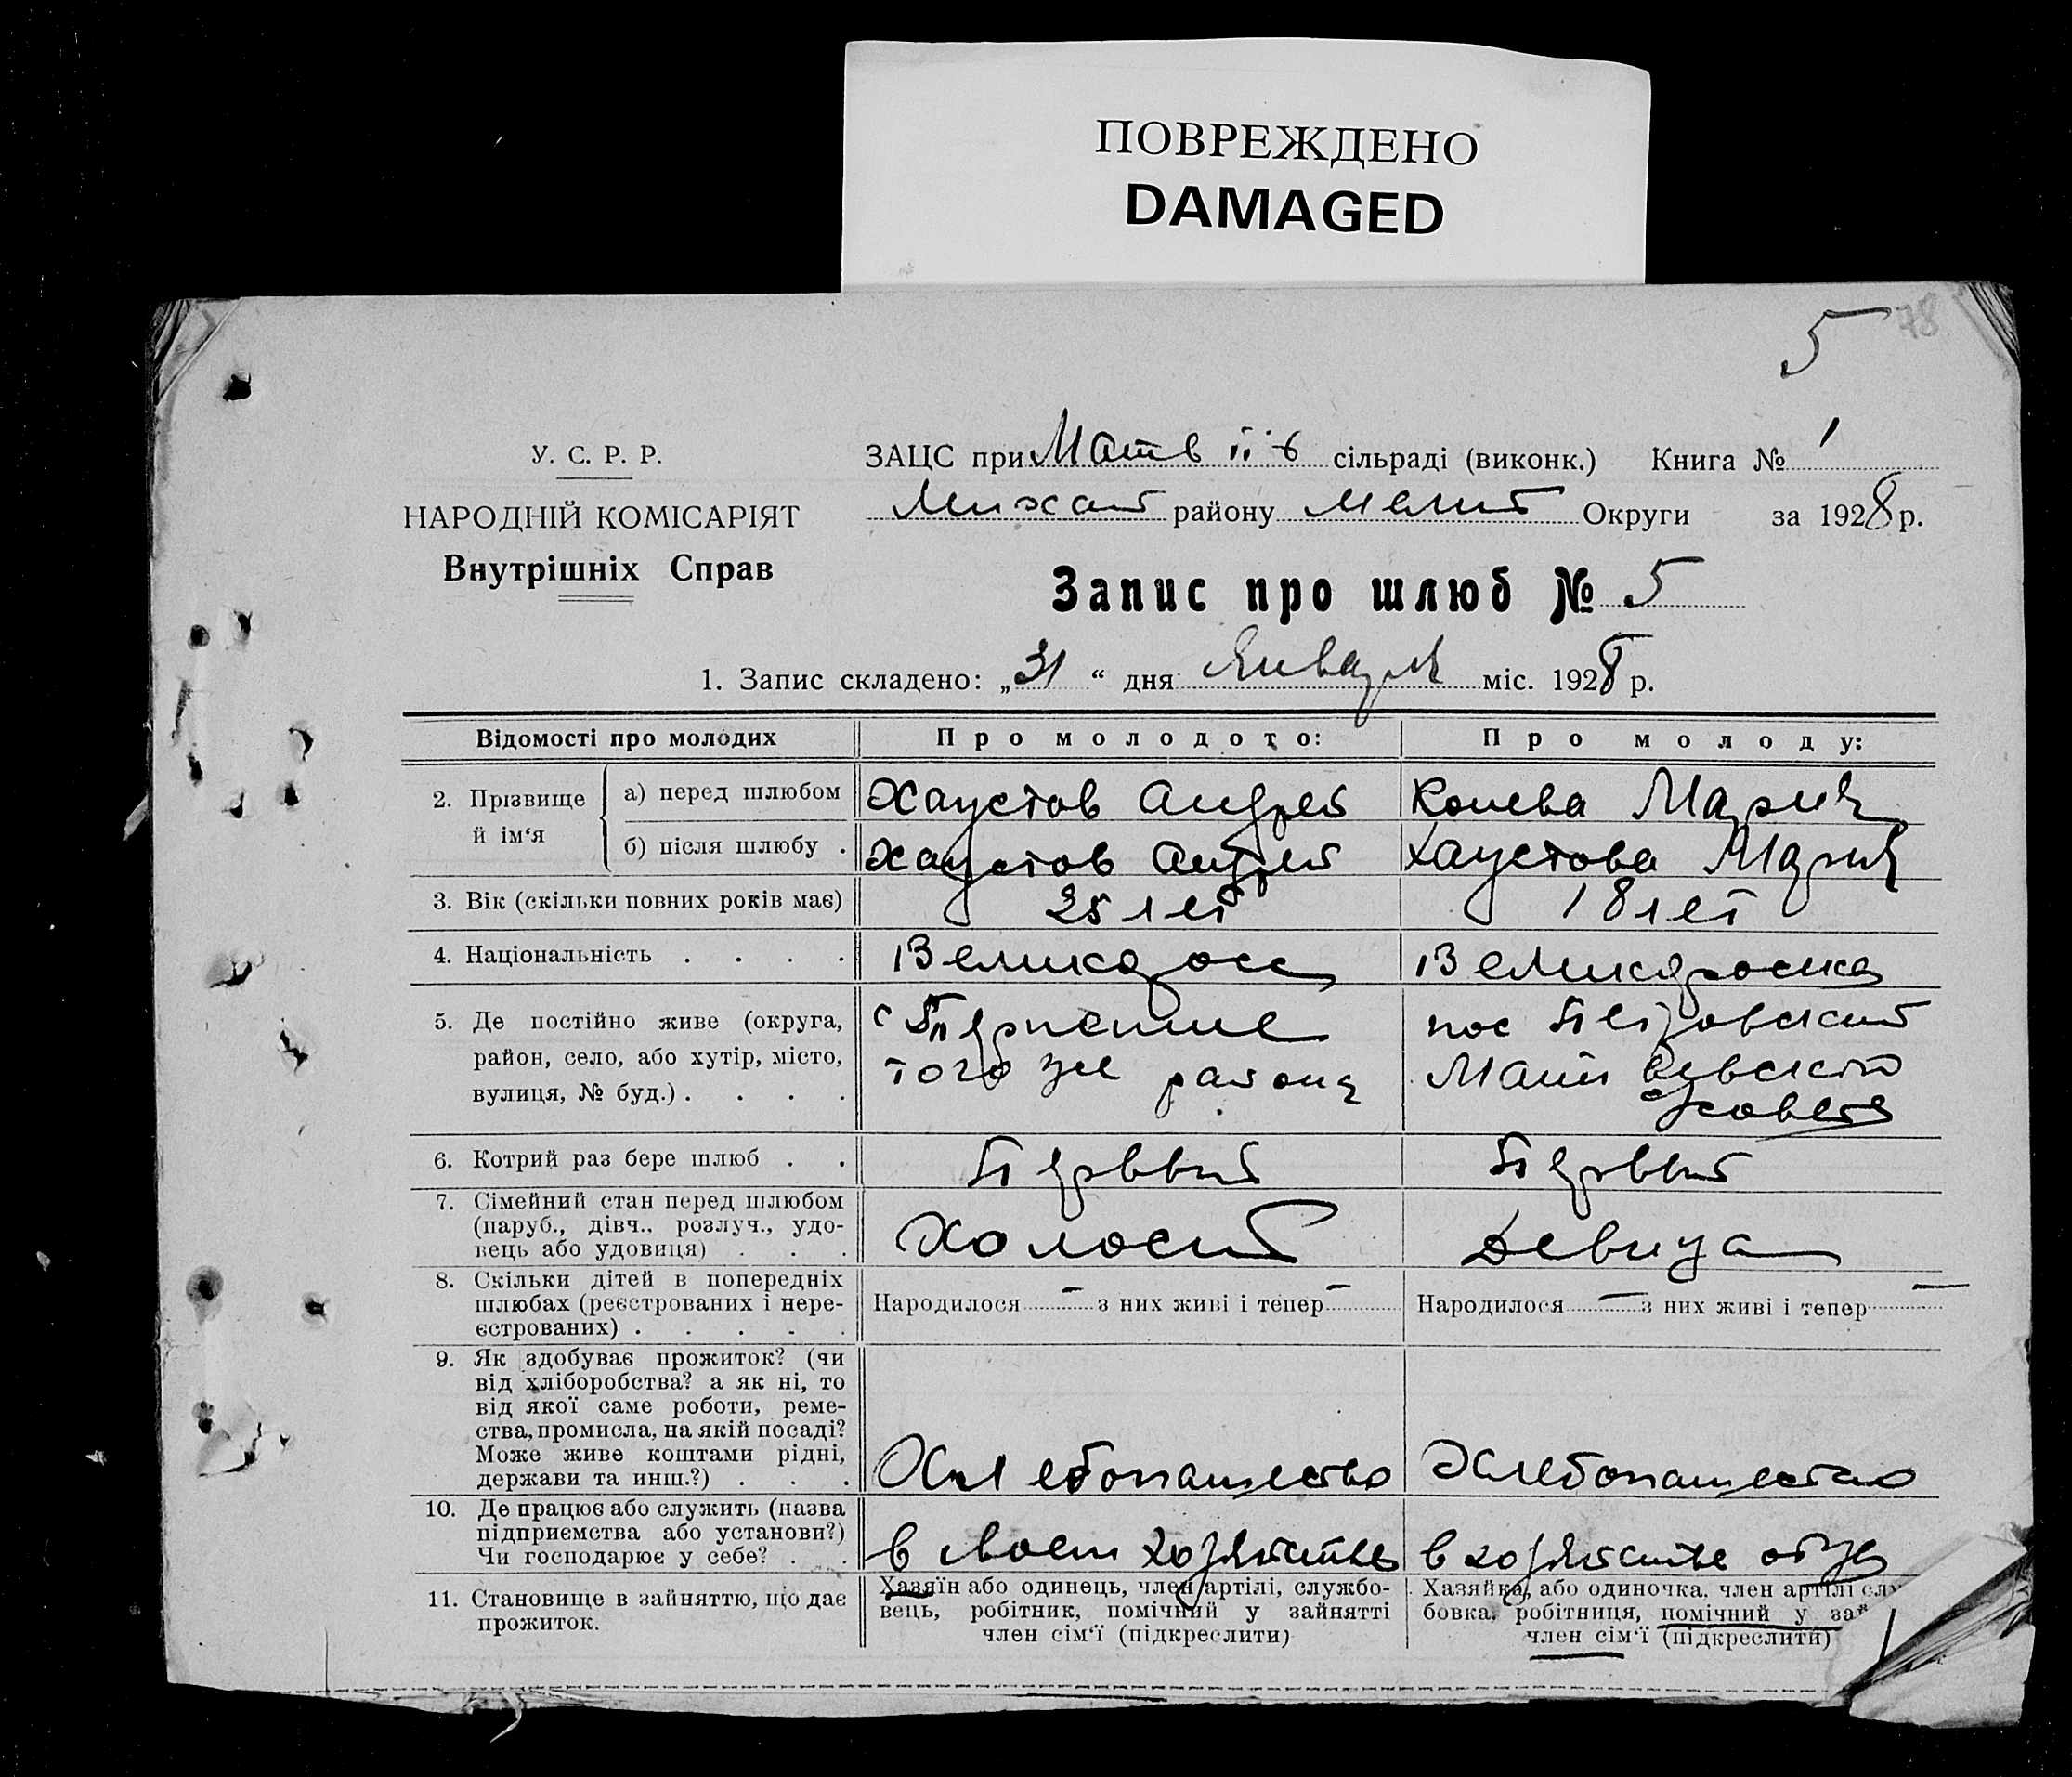 ПОВРЕЖДЕНО
DAMAGED
5 78
У. С. Р. Р.
НАРОДНІЙ КОМІСАРІЯТ
Внутрішніх Справ
ЗАЦС при Матв сільраді (виконк.) Книга № 1
Михай району Мелит Округи за 1928 р.
Запис про шлюб № 5
1. Запис складено: „31“ дня Января міс. 1928 р.
Відомості про молодих
Про молодого:
Про молоду:
2. Прізвище й ім‘я
а) перед шлюбом
Хаустов Андрей
Конева Мария
б) після шлюбу .
Хаустов Андрей
Хаустова Мария
3. Вік (скільки повних років має)
25 лет
18 лет
4. Національність . . . .
Великоросс
Великороска
5. Де постійно живе (округа,
район, село, або хутір, місто,
вулиця, № буд.) . . . .
с Терпение
того же района
пос Петровский
Матвеевского
совета
6. Котрий раз бере шлюб . .
Первый
Первый
7. Сімейний стан перед шлюбом
(паруб., дівч., розлуч., удо-
вець або удовиця) . . .
Холост
Девица
8. Скільки дітей в попередніх
шлюбах (реєстрованих і нере-
єстрованих) . . . . .
Народилося — з них живі і тепер —
Народилося — з них живі і тепер —
9. Як здобуває прожиток? (чи
від хліборобства? а як ні, то
від якої саме роботи, реме-
ства, промисла, на якій посаді?
Може живе коштами рідні,
держави та инш.?) . . .
Хлебопашество
Хлебопашество
10. Де працює або служить (назва
підприємства або установи?)
Чи господарює у себе? . .
в своем хозяйстве
в хозяйстве отца
11. Становище в зайняттю, що дає
прожиток.
Хазяїн або одинець, член артілі, службо-
вець, робітник, помічний у зайнятті
член сім‘ї (підкреслити)
Хазяйка, або одиночка, член артілі слу
бовка, робітниця, помічний у зай
член сім‘ї (підкреслити)